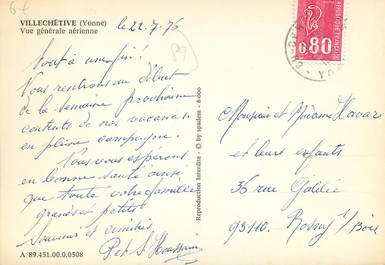 6f
VILLECHÉTIVE (Yonne)
Vue générale aérienne
le 22-7-76
89
Tout a une fin!
Nous rentrons au début
de la semaine prochaine
contents de nos vacances
en pleine campagne.
Nous vous espérons
en bonne santé ainsi
que toute votre famille
grands et petits
Souvenirs et amitiés
P et S
A 89.451.00.0.0508
Reproduction interdite - © by spadem - 8-000
0,80
Monsieur et Madame
et leurs enfants
36 rue Galilée
93110. Rosny s/Bois